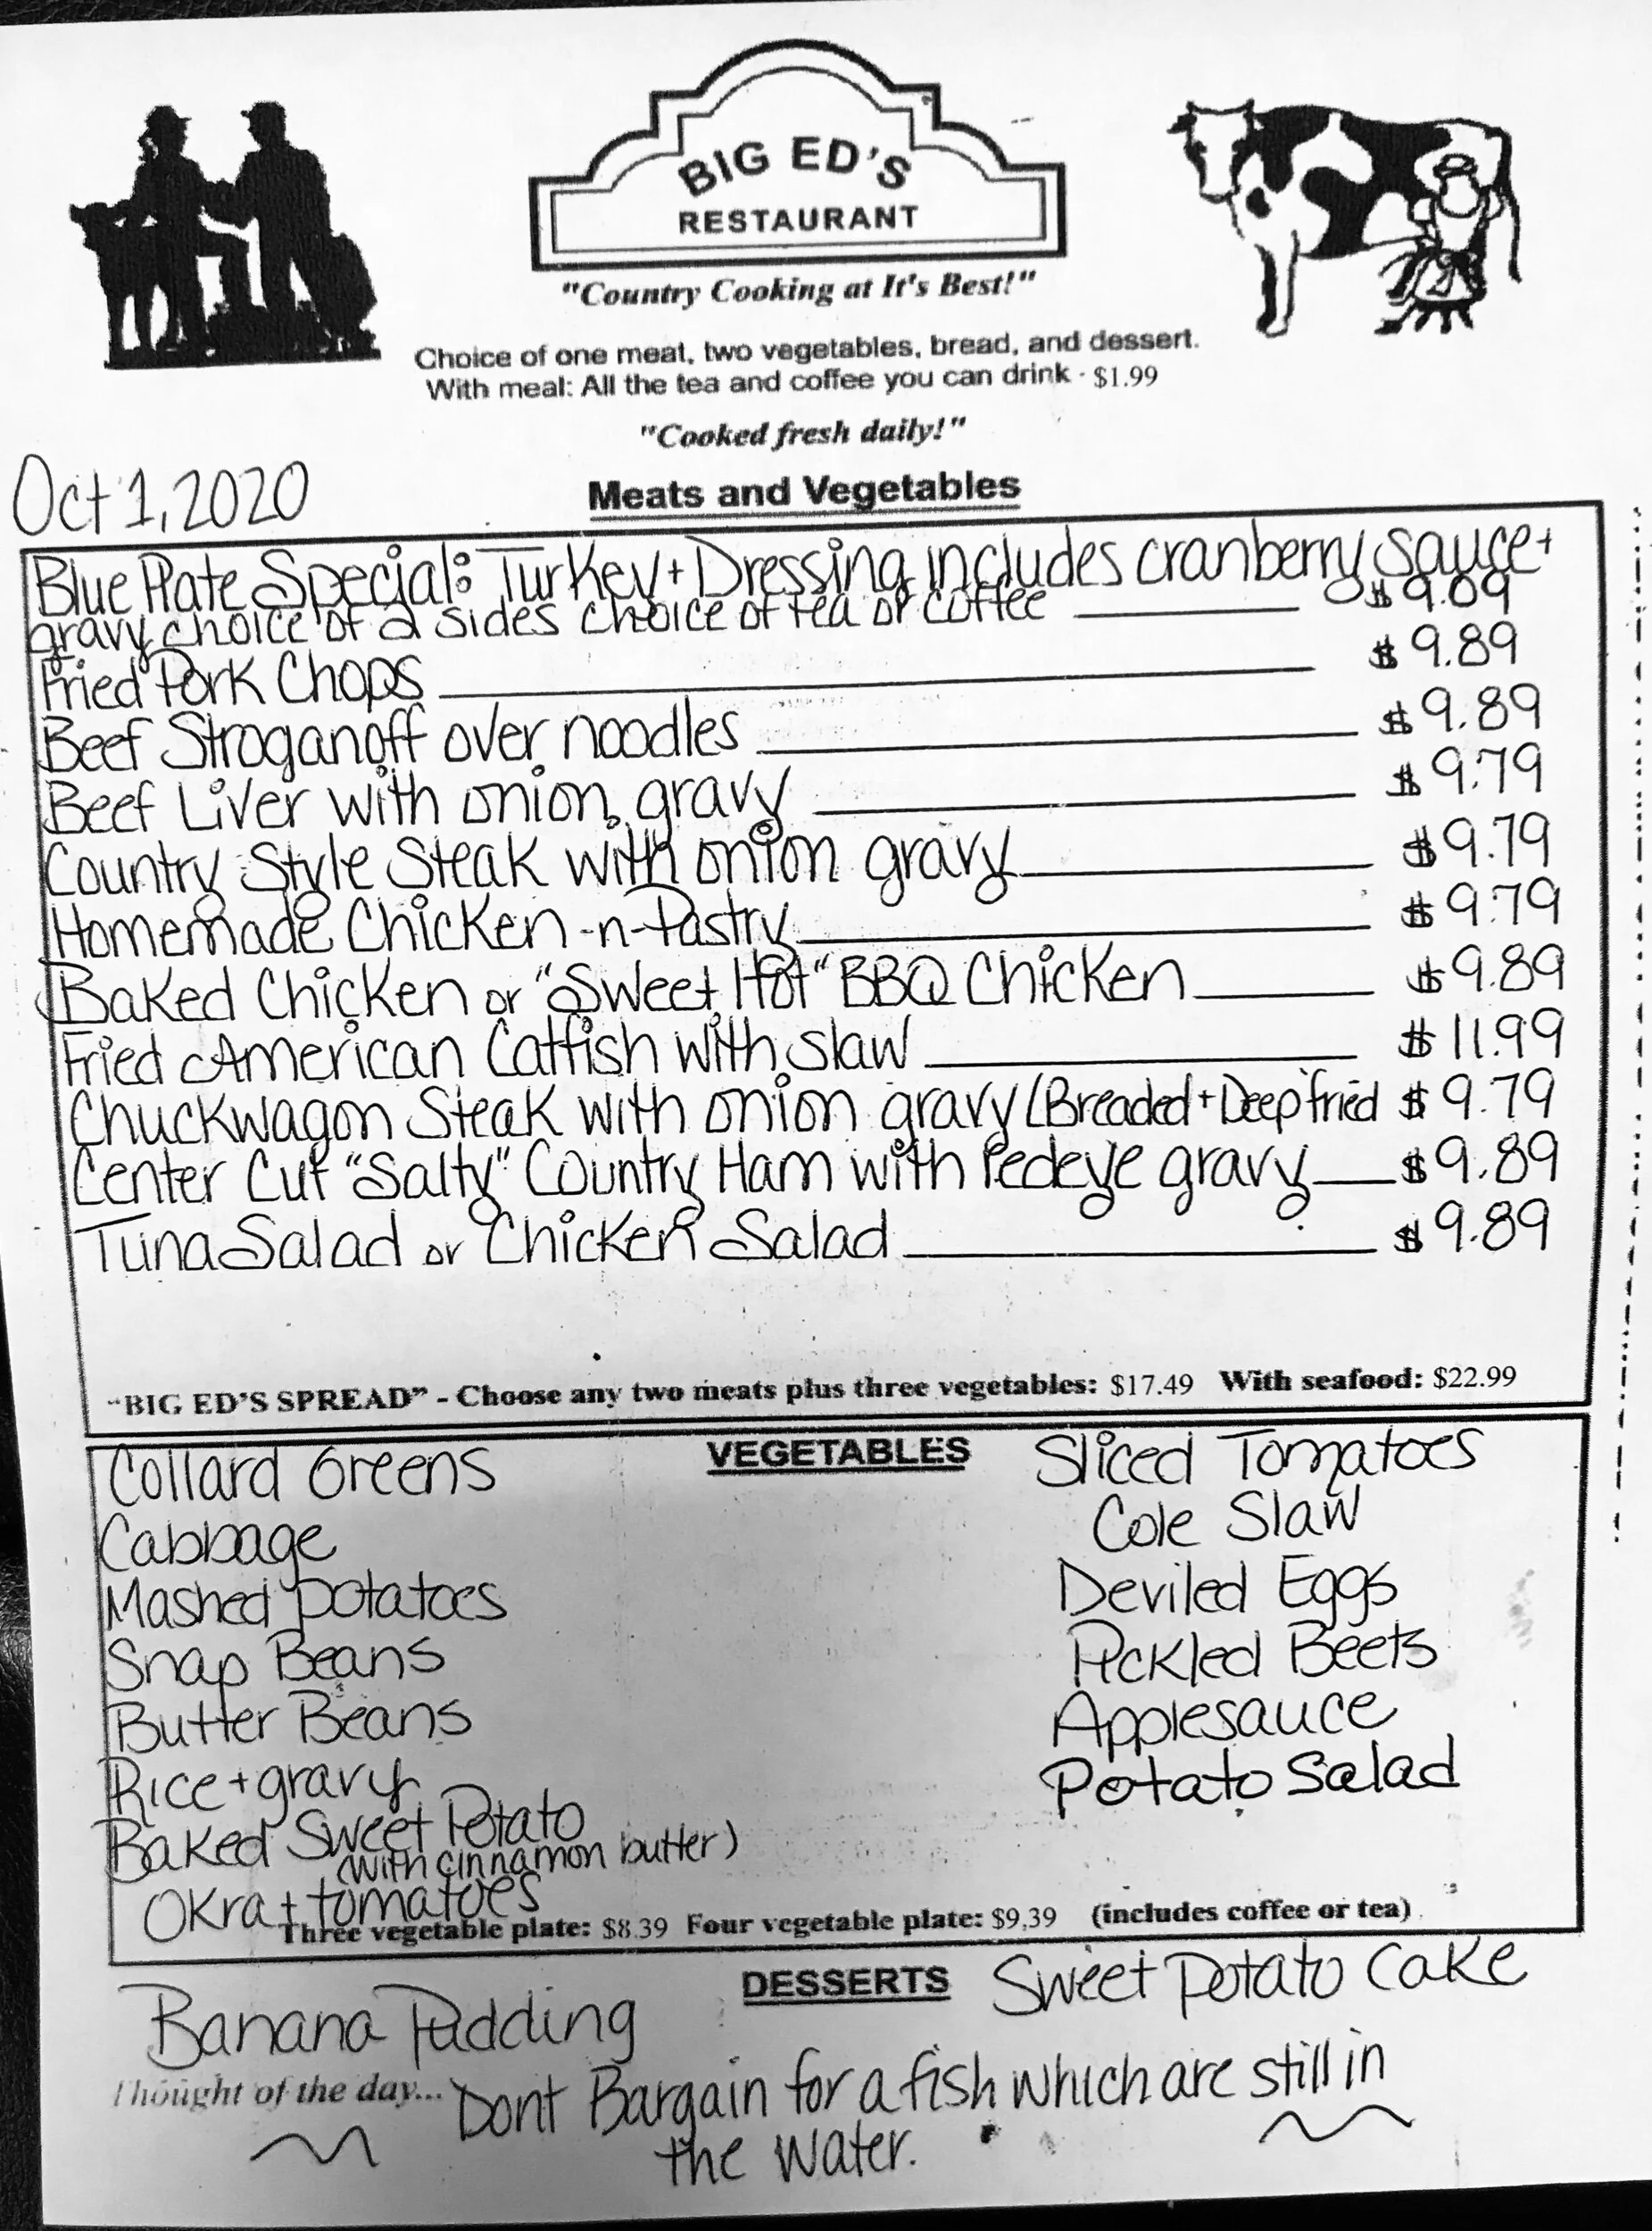 BIG ED'S
RESTAURANT
"Country Cooking at It's Best!"
Choice of one meat, two vegetables, bread, and dessert.
With meal: All the tea and coffee you can drink - $1.99
"Cooked fresh daily!"
Oct 1, 2020
Meats and Vegetables
Blue Plate Special: Turkey + Dressing includes cranberry sauce +
gravy choice of 2 sides choice of tea or coffee $9.09
Fried Pork Chops $9.89
Beef Stroganoff over noodles $9.89
Beef Liver with onion gravy $9.79
Country Style Steak with onion gravy $9.79
Homemade Chicken-n-Pastry $9.79
Baked Chicken or "Sweet Hot" BBQ Chicken $9.89
Fried American Catfish with slaw $11.99
Chuckwagon Steak with onion gravy (Breaded + Deep fried $9.79
Center Cut "Salty" Country Ham with Redeye gravy $9.89
Tuna Salad or Chicken Salad $9.89
"BIG ED'S SPREAD" - Choose any two meats plus three vegetables: $17.49 With seafood: $22.99
VEGETABLES
Collard Greens
Cabbage
Mashed potatoes
Snap Beans
Butter Beans
Rice + gravy
Baked Sweet Potato
(with cinnamon butter)
Okra + tomatoes
Sliced Tomatoes
Cole Slaw
Deviled Eggs
Pickled Beets
Applesauce
Potato Salad
Three vegetable plate: $8.39 Four vegetable plate: $9.39 (includes coffee or tea)
DESSERTS
Banana Pudding
Sweet Potato Cake
Thought of the day... Dont Bargain for a fish which are still in
the water.